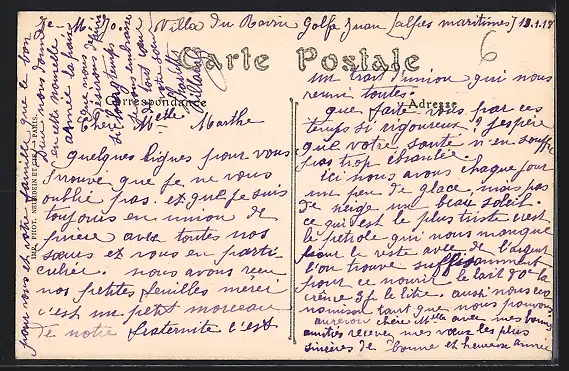 Villa du Ravin Golfe Juan [alpes maritimes] 18.1.18
6
Carte Postale
Correspondance
Adresse
Melle Marthe
quelques lignes pour vous
prouvé que je ne vous
oublié pas. et que je suis
toujours en union de
prière avec toutes nos
sœurs et vous en parti
culier. nous avons reçu
nos petites feuilles merci
c'est un petit morceau
de notre fraternité c'est
un trait d'union qui nous
réuni toutes.
que faite vous par ces
temps si rigoureux? j'espère
que votre santé n'en souffre
pas trop
Ici nous avons chaque jour
un peu de glace, mais pas
de neige un beau soleil.
ce qui est le plus triste c'est
le pétrole qui nous manque
pour le reste avec de l'argent
l'on trouve suffisamment
pour ce nourir le lait
crème 3f le litre. aussi nous
que nous pouvons
aurevoir chère Melle avec mes bonnes
amitiés recevez mes vœux les plus
sincères de bonne et heureuse année
pour vous et votre famille que le bon
Dieu nous donne
en cette nouvelle
année la paix
que nous
désirons depuis
si longtemps
je vous embrasse
de tout cœur
votre sœur
IMP. PHOT. NEURDEIN ET CIE. PARIS.